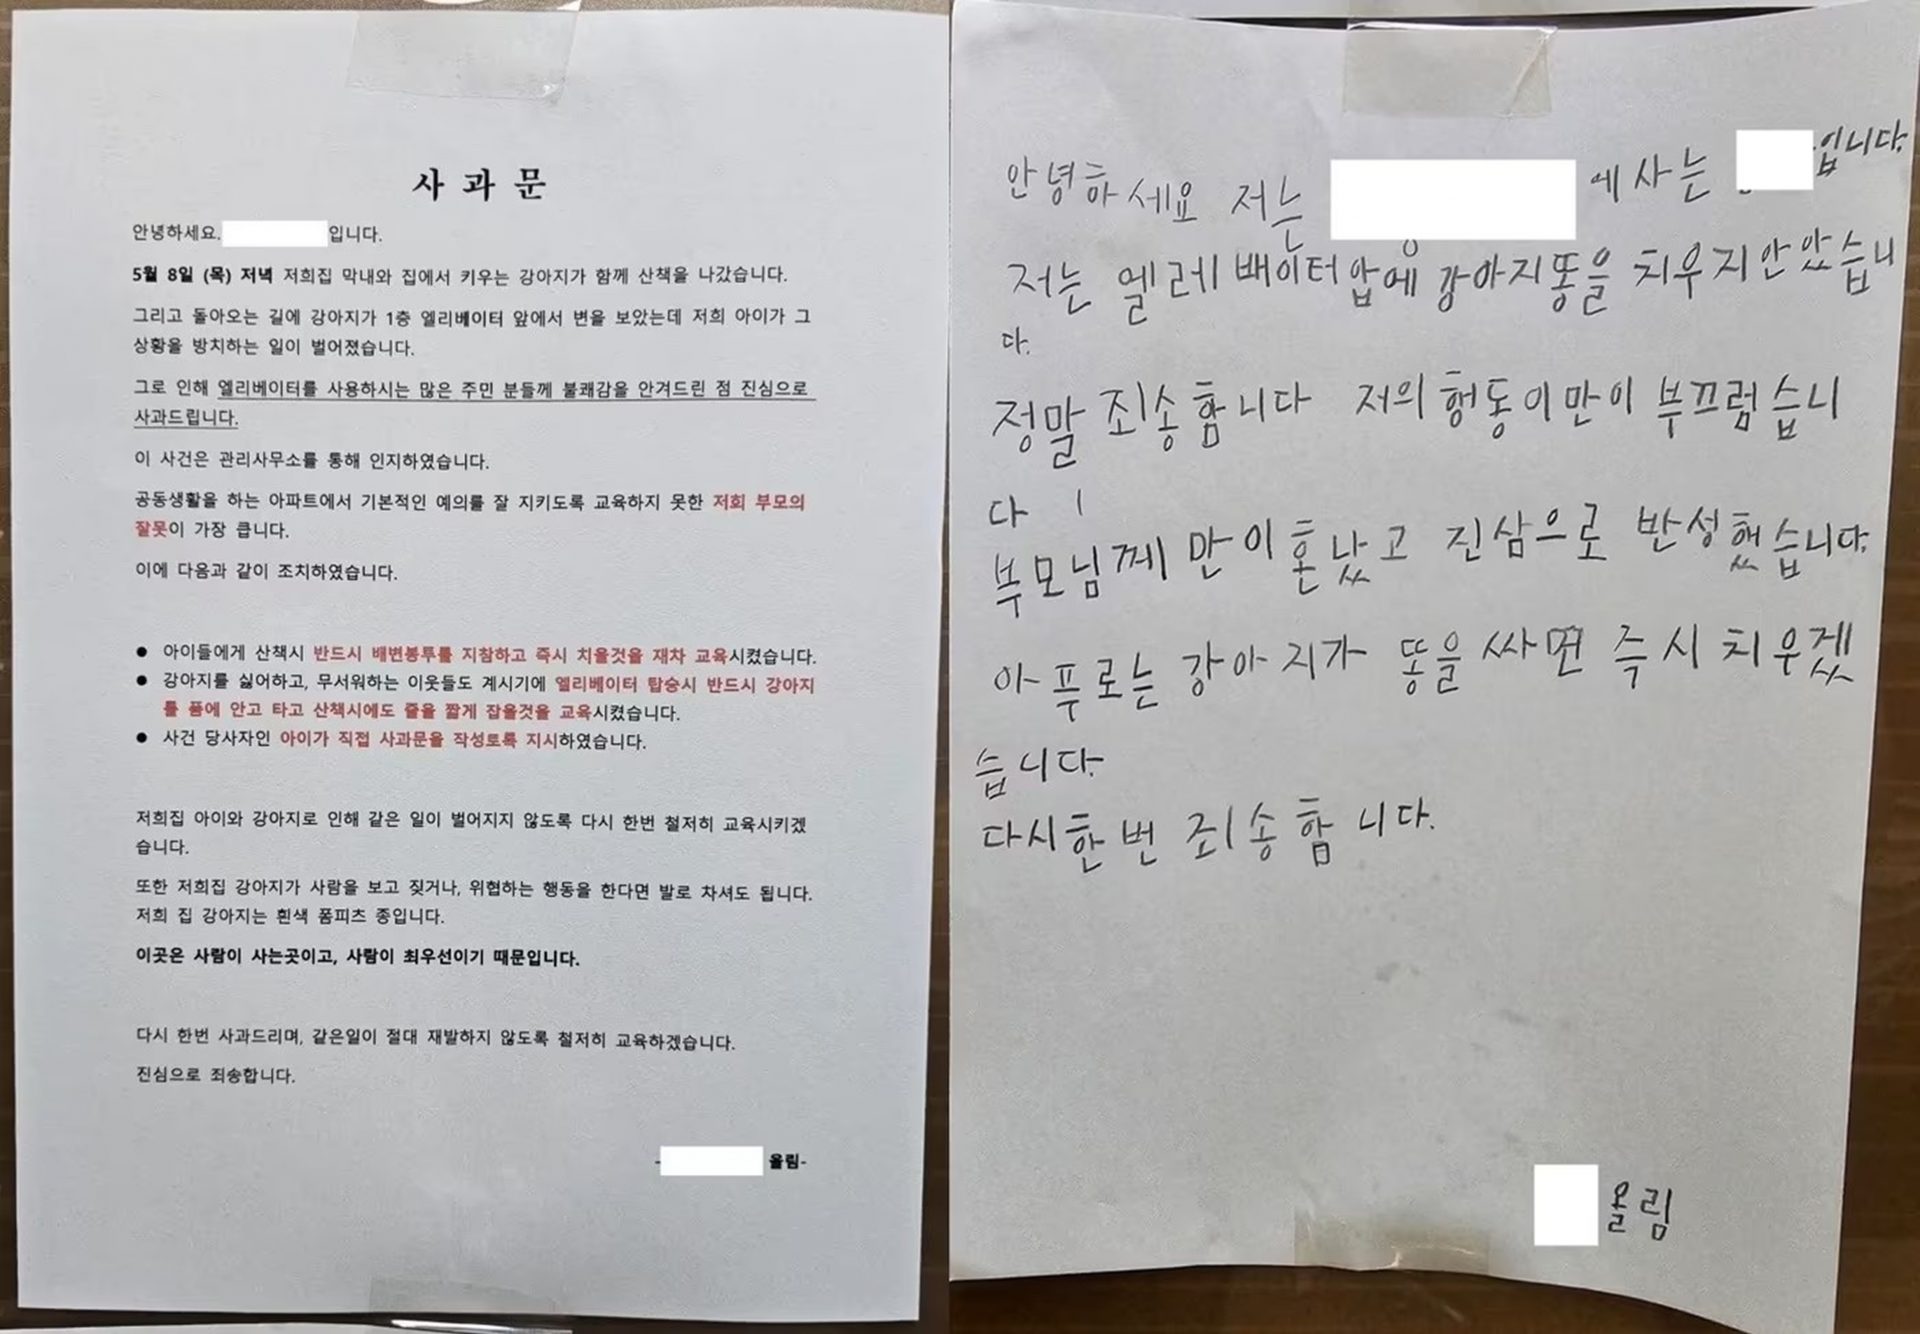 사과문
안녕하세요. 입니다.
5월 8일 (목) 저녁 저희집 막내와 집에서 키우는 강아지가 함께 산책을 나갔습니다.
그리고 돌아오는 길에 강아지가 1층 엘리베이터 앞에서 변을 보았는데 저희 아이가 그
상황을 방치하는 일이 벌어졌습니다.
그로 인해 엘리베이터를 사용하시는 많은 주민 분들께 불쾌감을 안겨드린 점 진심으로
사과드립니다.
이 사건은 관리사무소를 통해 인지하였습니다.
공동생활을 하는 아파트에서 기본적인 예의를 잘 지키도록 교육하지 못한 저희 부모의
잘못이 가장 큽니다.
이에 다음과 같이 조치하였습니다.
● 아이들에게 산책시 반드시 배변봉투를 지참하고 즉시 치울것을 재차 교육시켰습니다.
● 강아지를 싫어하고, 무서워하는 이웃들도 계시기에 엘리베이터 탑승시 반드시 강아지
를 품에 안고 타고 산책시에도 줄을 짧게 잡을것을 교육시켰습니다.
● 사건 당사자인 아이가 직접 사과문을 작성토록 지시하였습니다.
저희집 아이와 강아지로 인해 같은 일이 벌어지지 않도록 다시 한번 철저히 교육시키겠
습니다.
또한 저희집 강아지가 사람을 보고 짖거나, 위협하는 행동을 한다면 발로 차셔도 됩니다.
저희 집 강아지는 흰색 폼피츠 종입니다.
이곳은 사람이 사는곳이고, 사람이 최우선이기 때문입니다.
다시 한번 사과드리며, 같은일이 절대 재발하지 않도록 철저히 교육하겠습니다.
진심으로 죄송합니다.
- 올림-
안녕하세요 저는 에사는 입니다.
저는 엘레배이터압에 강아지똥을 치우지안았습니
다.
정말 죄송합니다 저의행동이만이 부끄럼습니
다
부모님께 만이혼났고 진삼으로 반성했습니다.
아푸로는 강아지가 똥을 싸면 즉시 치우겠
습니다.
다시한번 죄송합니다.
올림